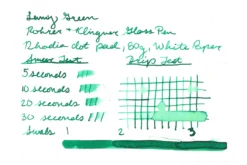 Sunny Green
Rohrer + Klingner Glass Pen
Rhodia dot pad, 80g, White Paper
Smear Test Drip Test
5 seconds
10 seconds
20 seconds
30 seconds
Swabs 1 2 3